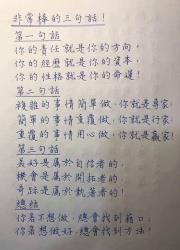 非常棒的三句話！
第一句話
你的責任就是你的方向，
你的經歷就是你的資本，
你的性格就是你的命運！
第二句話
複雜的事情簡單做，你就是專家；
簡單的事情重覆做，你就是行家；
重覆的事情用心做，你就是贏家！
第三句話
美好是屬於自信者的；
機會是屬於開拓者的；
奇跡是屬於執著者的！
總結
你若不想做，總會找到藉口；
你若想做好，總會找到方法！